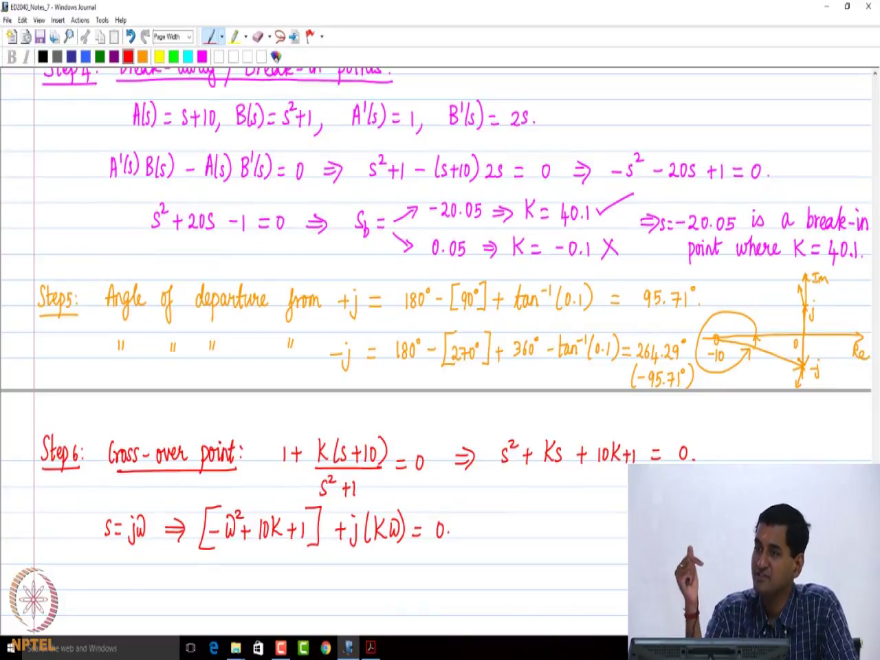 ED2040_Notes_7 - Windows Journal
File Edit View Insert Actions Tools Help
Page Width
B I
Step 4: Break-away / Break-in points.
A(s) = s+10, B(s) = s²+1, A'(s) = 1, B'(s) = 2s.
A'(s) B(s) - A(s) B'(s) = 0 ⇒ s²+1 - (s+10) 2s = 0 ⇒ -s² - 20s + 1 = 0.
s² + 20s - 1 = 0 ⇒ S_b = → -20.05 ⇒ K = 40.1 ✓
→ 0.05 ⇒ K = -0.1 X
⇒ s = -20.05 is a break-in
point where K = 40.1.
Step5: Angle of departure from +j = 180° - [90°] + tan⁻¹(0.1) = 95.71°.
" " " " -j = 180° - [270°] + 360° - tan⁻¹(0.1) = 264.29°
(-95.71°)
Im
j
-10 0 Re
-j
Step6: Cross-over point: 1 + K(s+10)/(s²+1) = 0 ⇒ s² + Ks + 10K+1 = 0.
s = jω ⇒ [-ω² + 10K + 1] + j(Kω) = 0.
NPTEL
the web and Windows